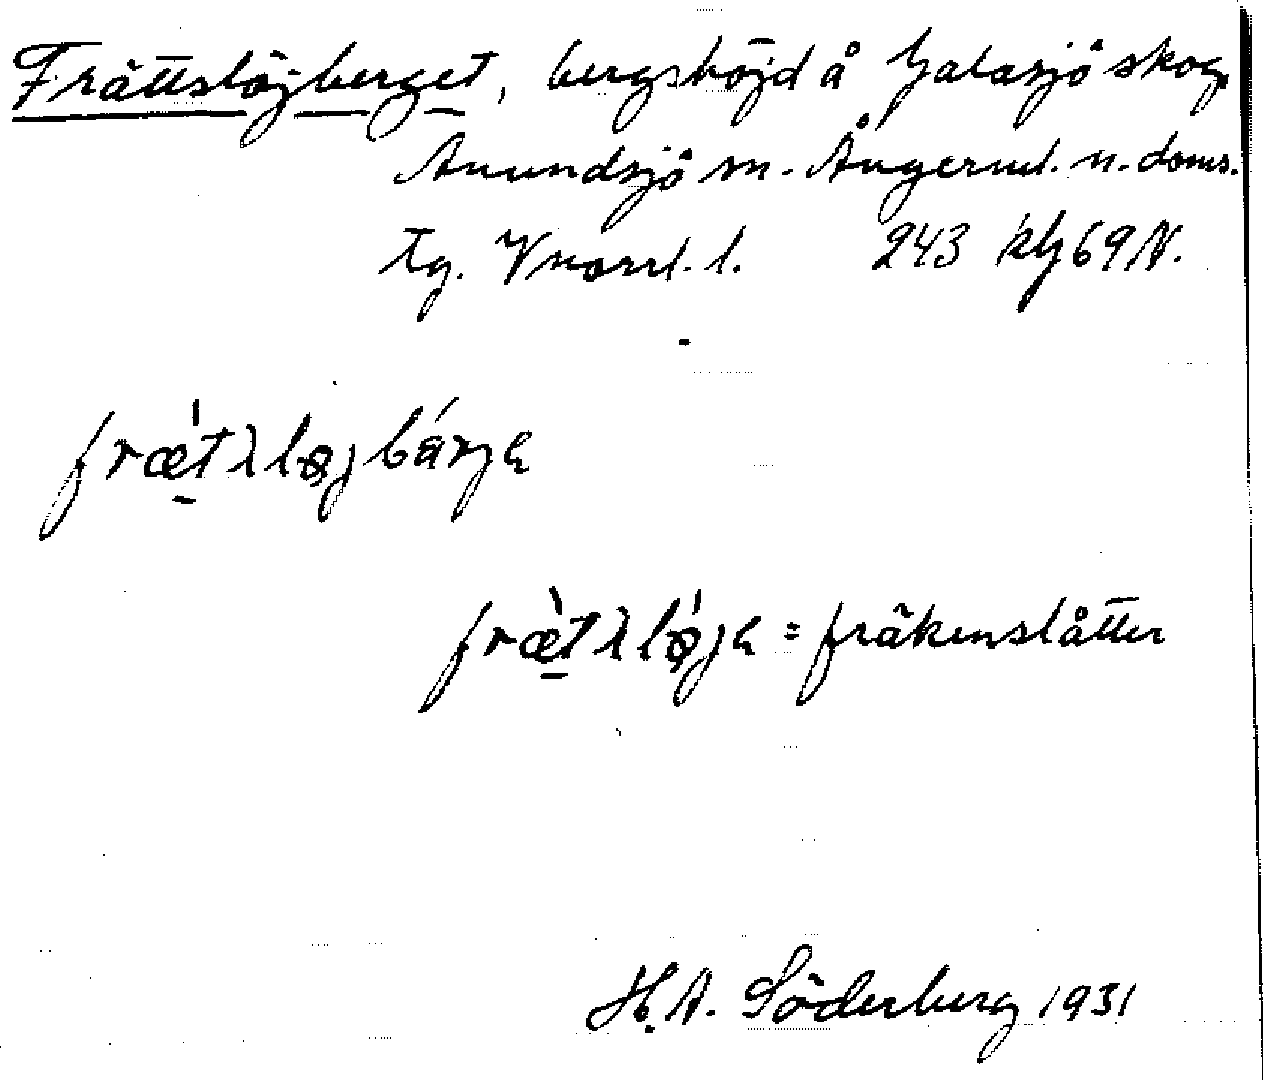 Frättslöjberget, bergshöjd å Galasjö skog,
Anundsjö sn. Ångerml. n. doms.
tg. Vnorrl. l. 243 klj 69 N.
fræ̀tsløjbárjɐ
fræ̀tsløjɐ = fräkenslåtter
H. A. Söderberg 1931